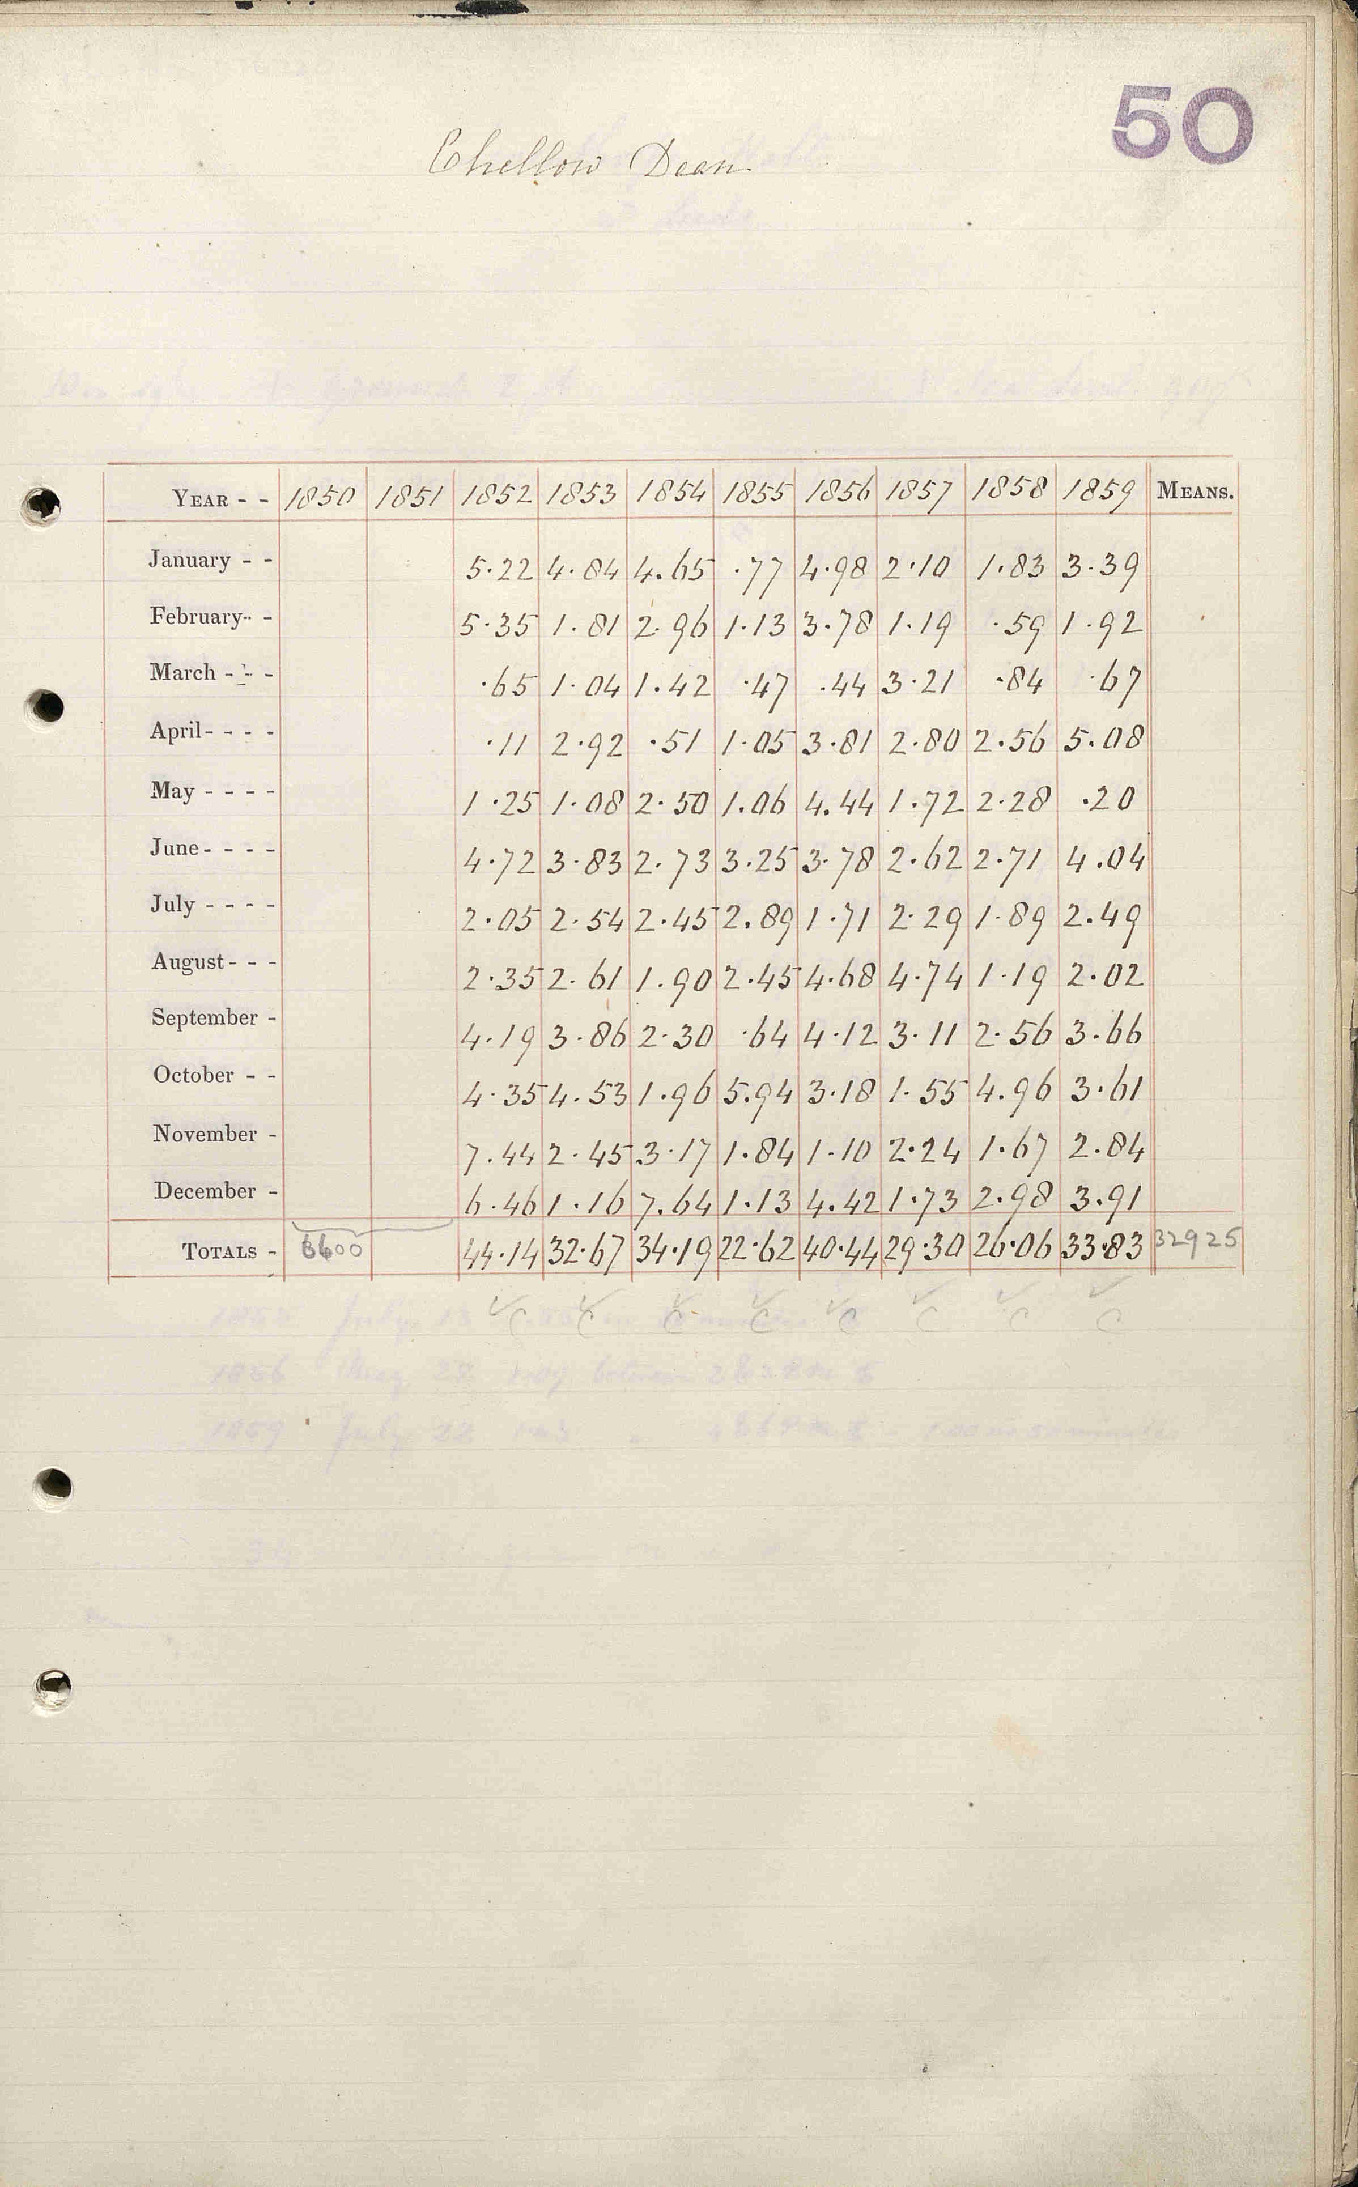 50
Chellow Dean
YEAR - - 1850 1851 1852 1853 1854 1855 1856 1857 1858 1859 MEANS.
January - - 5.22 4.84 4.65 .77 4.98 2.10 1.83 3.39
February - - 5.35 1.81 2.96 1.13 3.78 1.19 .59 1.92
March - - - .65 1.04 1.42 .47 .44 3.21 .84 .67
April - - - - .11 2.92 .51 1.05 3.81 2.80 2.56 5.08
May - - - - 1.25 1.08 2.50 1.06 4.44 1.72 2.28 .20
June - - - - 4.72 3.83 2.73 3.25 3.78 2.62 2.71 4.04
July - - - - 2.05 2.54 2.45 2.89 1.71 2.29 1.89 2.49
August - - - 2.35 2.61 1.90 2.45 4.68 4.74 1.19 2.02
September - 4.19 3.86 2.30 .64 4.12 3.11 2.56 3.66
October - - 4.35 4.53 1.96 5.94 3.18 1.55 4.96 3.61
November - 7.44 2.45 3.17 1.84 1.10 2.24 1.67 2.84
December - 6.46 1.16 7.64 1.13 4.42 1.73 2.98 3.91
TOTALS - 6600 44.14 32.67 34.19 22.62 40.44 29.30 26.06 33.83 32925
✓C ✓C ✓C ✓C ✓C ✓C ✓C ✓C